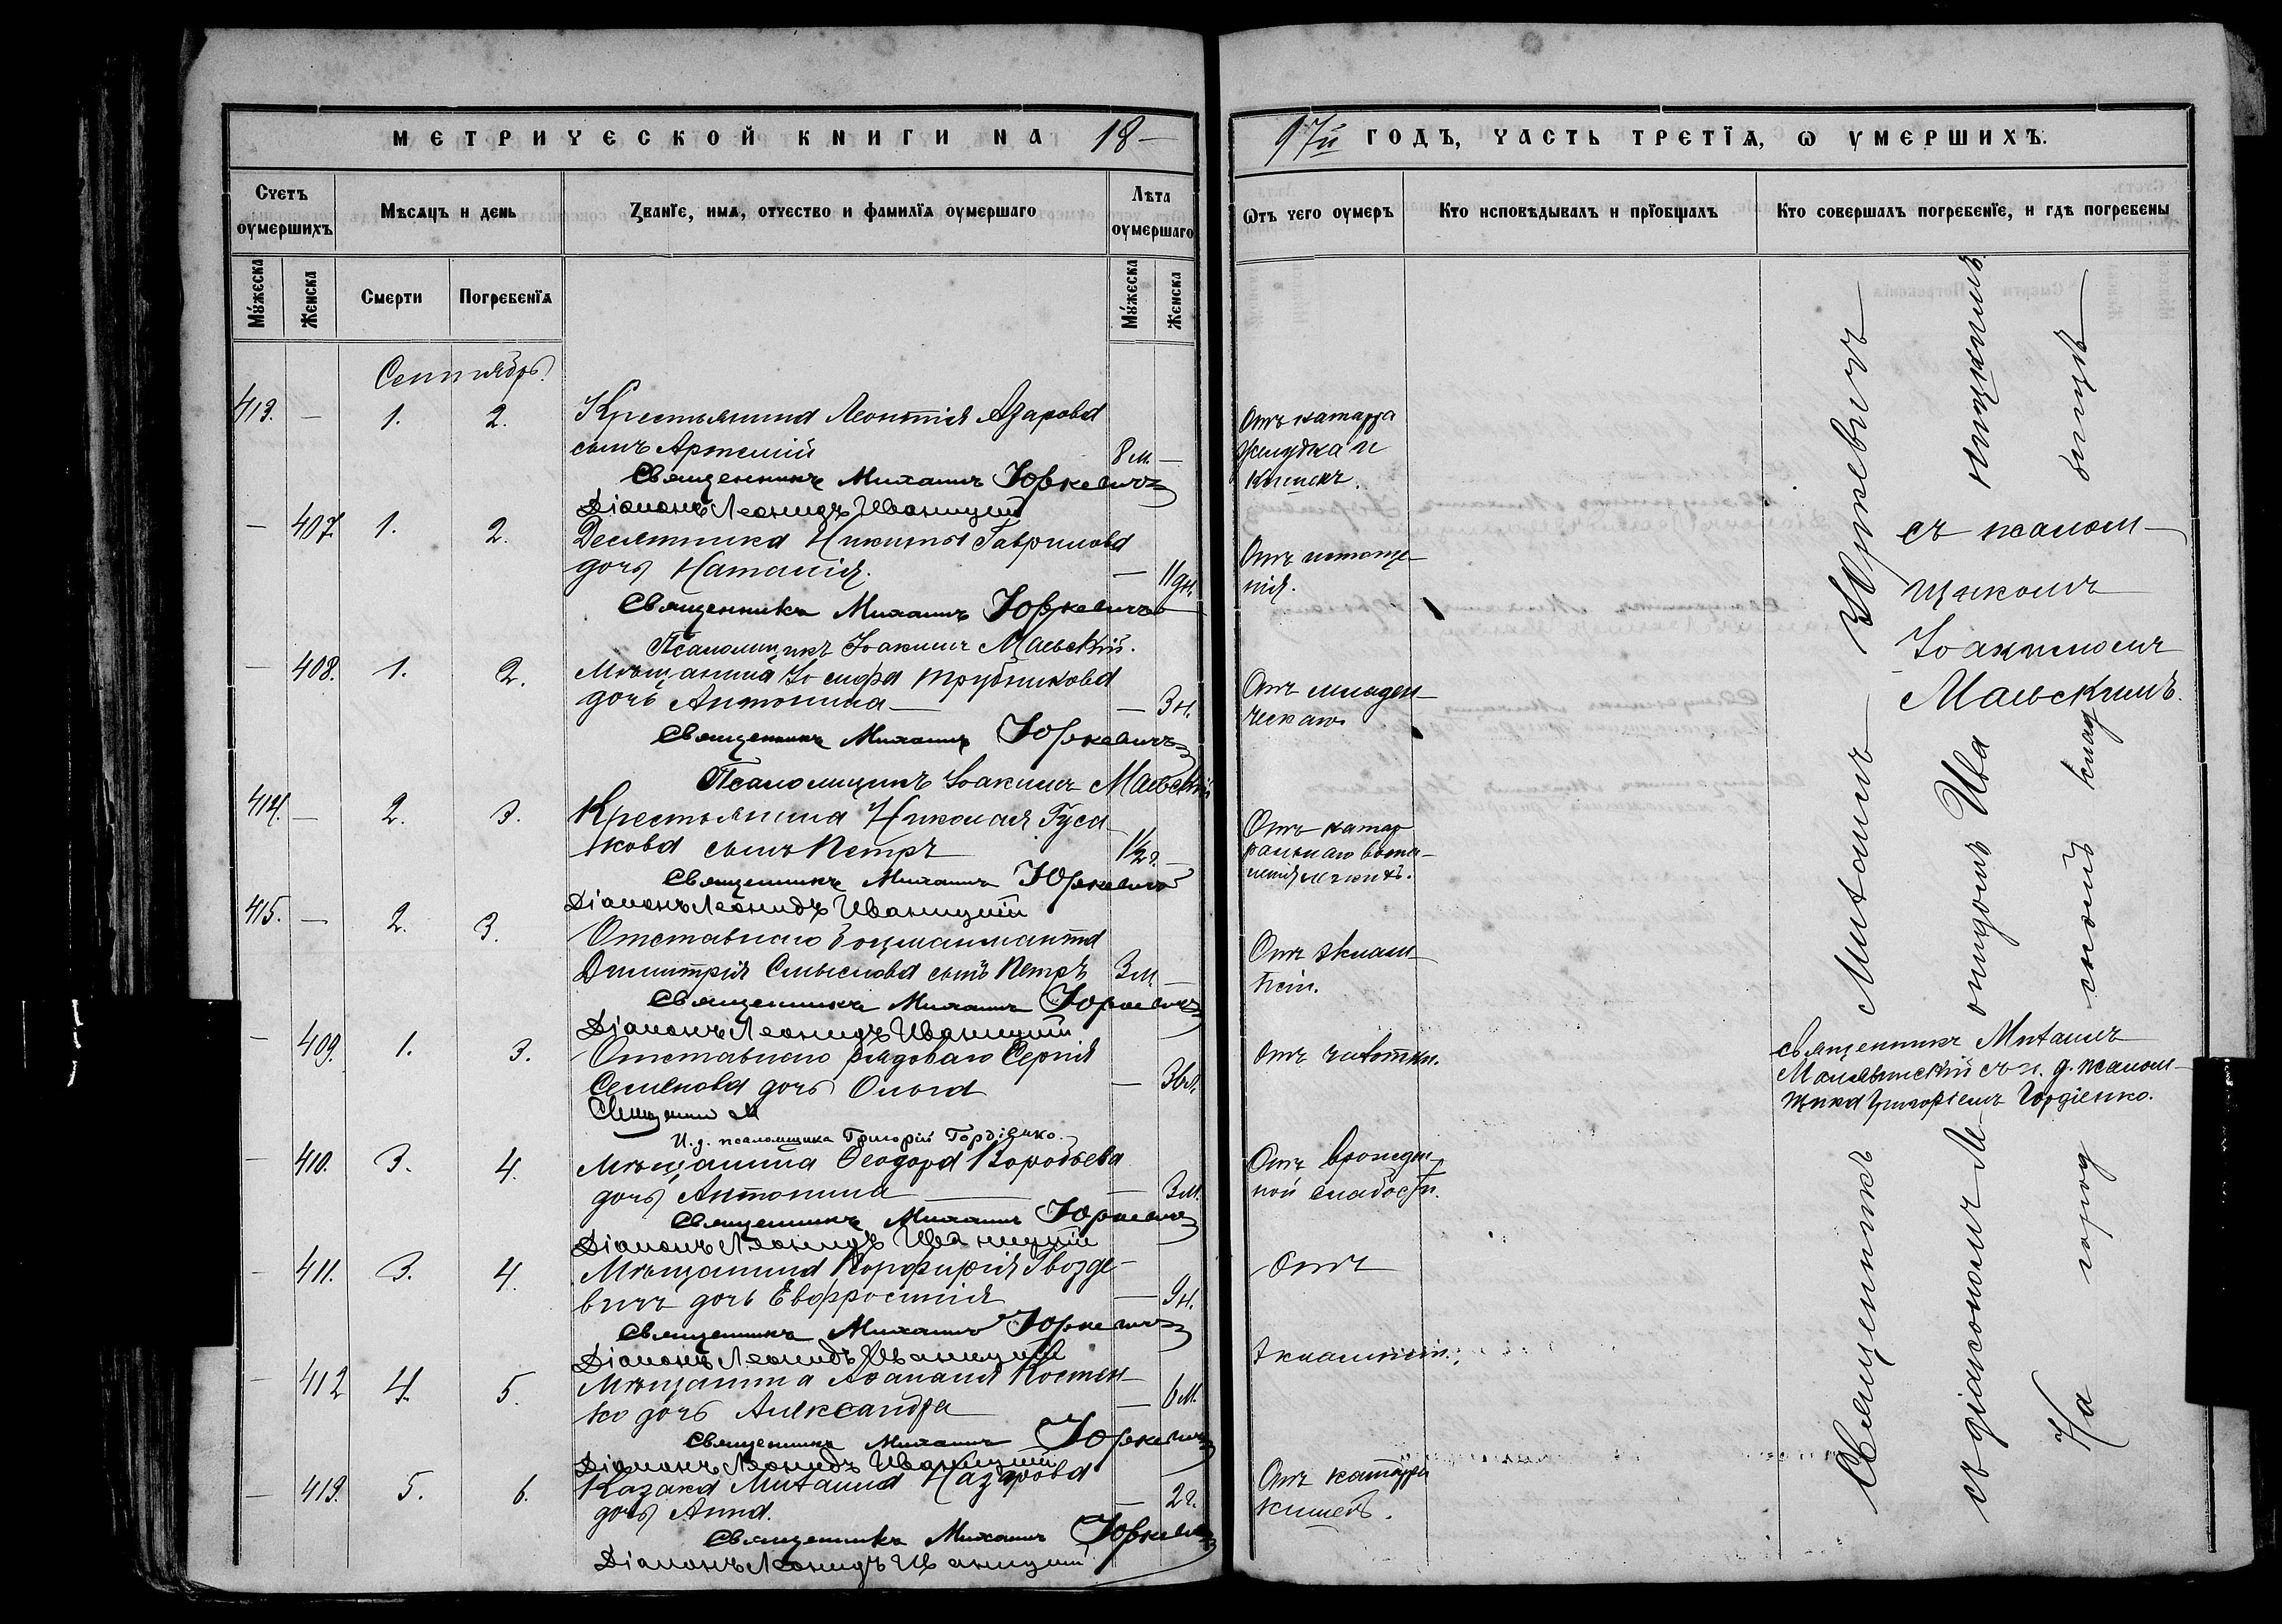 МЕТРИЧЕСКОЙ КНИГИ НА 18-
97й ГОДЪ, ЧАСТЬ ТРЕТІѦ, Ѡ УМЕРШИХЪ.
Счетъ оумершихъ
Мѣсѧцъ и день
Званїе, имѧ, отчество и фамилїѧ оумершаго
Лѣта оумершаго
Ѿтъ чего оумеръ
Кто исповѣдывалъ и прїобщалъ
Кто совершалъ погребенїе, и гдѣ погребены
Мужеска
Женска
Смерти
Погребенїѧ
Мужеска
Женска
Сентябрь.
413. — 1. 2. Крестьянина Леонтія Азарова
сынъ Арсеній 8 м. —
Отъ катарра
желудка и
кишекъ.
Священникъ Михаилъ Юркевичъ
Діаконъ Леонидъ Иваницкій
— 407. 1. 2. Десятника Никиты Гаврилова
дочь Наталія. — 11 дн.
Отъ истоще-
нія.
Священникъ Михаилъ Юркевичъ
Псаломщикъ Іоакимъ Маевскій.
— 408. 1. 2. Мѣщанина Іосифа Трубникова
дочь Антонина — 3 н.
Отъ младен-
ческаго
Священникъ Михаилъ Юркевичъ
Псаломщикъ Іоакимъ Маевскій
414. — 2. 3. Крестьянина Николая Гуса-
кова сынъ Петръ 1½ г. —
Отъ катар
ральнаго воспа-
ленія легкихъ.
Священникъ Михаилъ Юркевичъ
Діаконъ Леонидъ Иваницкій
415. — 2. 3. Отставнаго боцманмата
Димитрія Смыслова сынъ Петръ 3 м. —
Отъ эклам-
псіи.
Священникъ Михаилъ Юркевичъ
Діаконъ Леонидъ Иваницкій
— 409. 1. 3. Отставнаго рядоваго Сергія
Семенова дочь Ольга —
Священникъ М
И. д. псаломщика Григорій Гордіенко.
— 410. 3. 4. Мѣщанина Ѳеодора Воробьева
дочь Антонина — 3 м.
Отъ врожден-
ной слабости.
Священникъ Михаилъ Юркевичъ
Діаконъ Леонидъ Иваницкій
— 411. 3. 4. Мѣщанина Порфирія Гвозде-
вичъ дочь Евфросинія — 9 н.
Отъ
Священникъ Михаилъ Юркевичъ
Діаконъ Леонидъ Иваницкій
— 412 4. 5. Мѣщанина Аѳанасія Костен-
ко дочь Александра — 6 м.
эклампсіи.
Священникъ Михаилъ Юркевичъ
Діаконъ Леонидъ Иваницкій
— 413. 5. 6. Казака Михаила Назарова
дочь Анна. — 2 г.
Отъ катарра
кишекъ.
Священникъ Михаилъ Юркевичъ
Діаконъ Леонидъ Иваницкій
Священникъ Михаилъ Юркевичъ
съ діакономъ Леонидомъ Иваницкимъ
На городской кладбищѣ
съ псалом-
щикомъ
Іоакимомъ
Маевскимъ.
священникъ Михаилъ
съ и. д. псалом-
щика Григоріемъ Гордіенко.